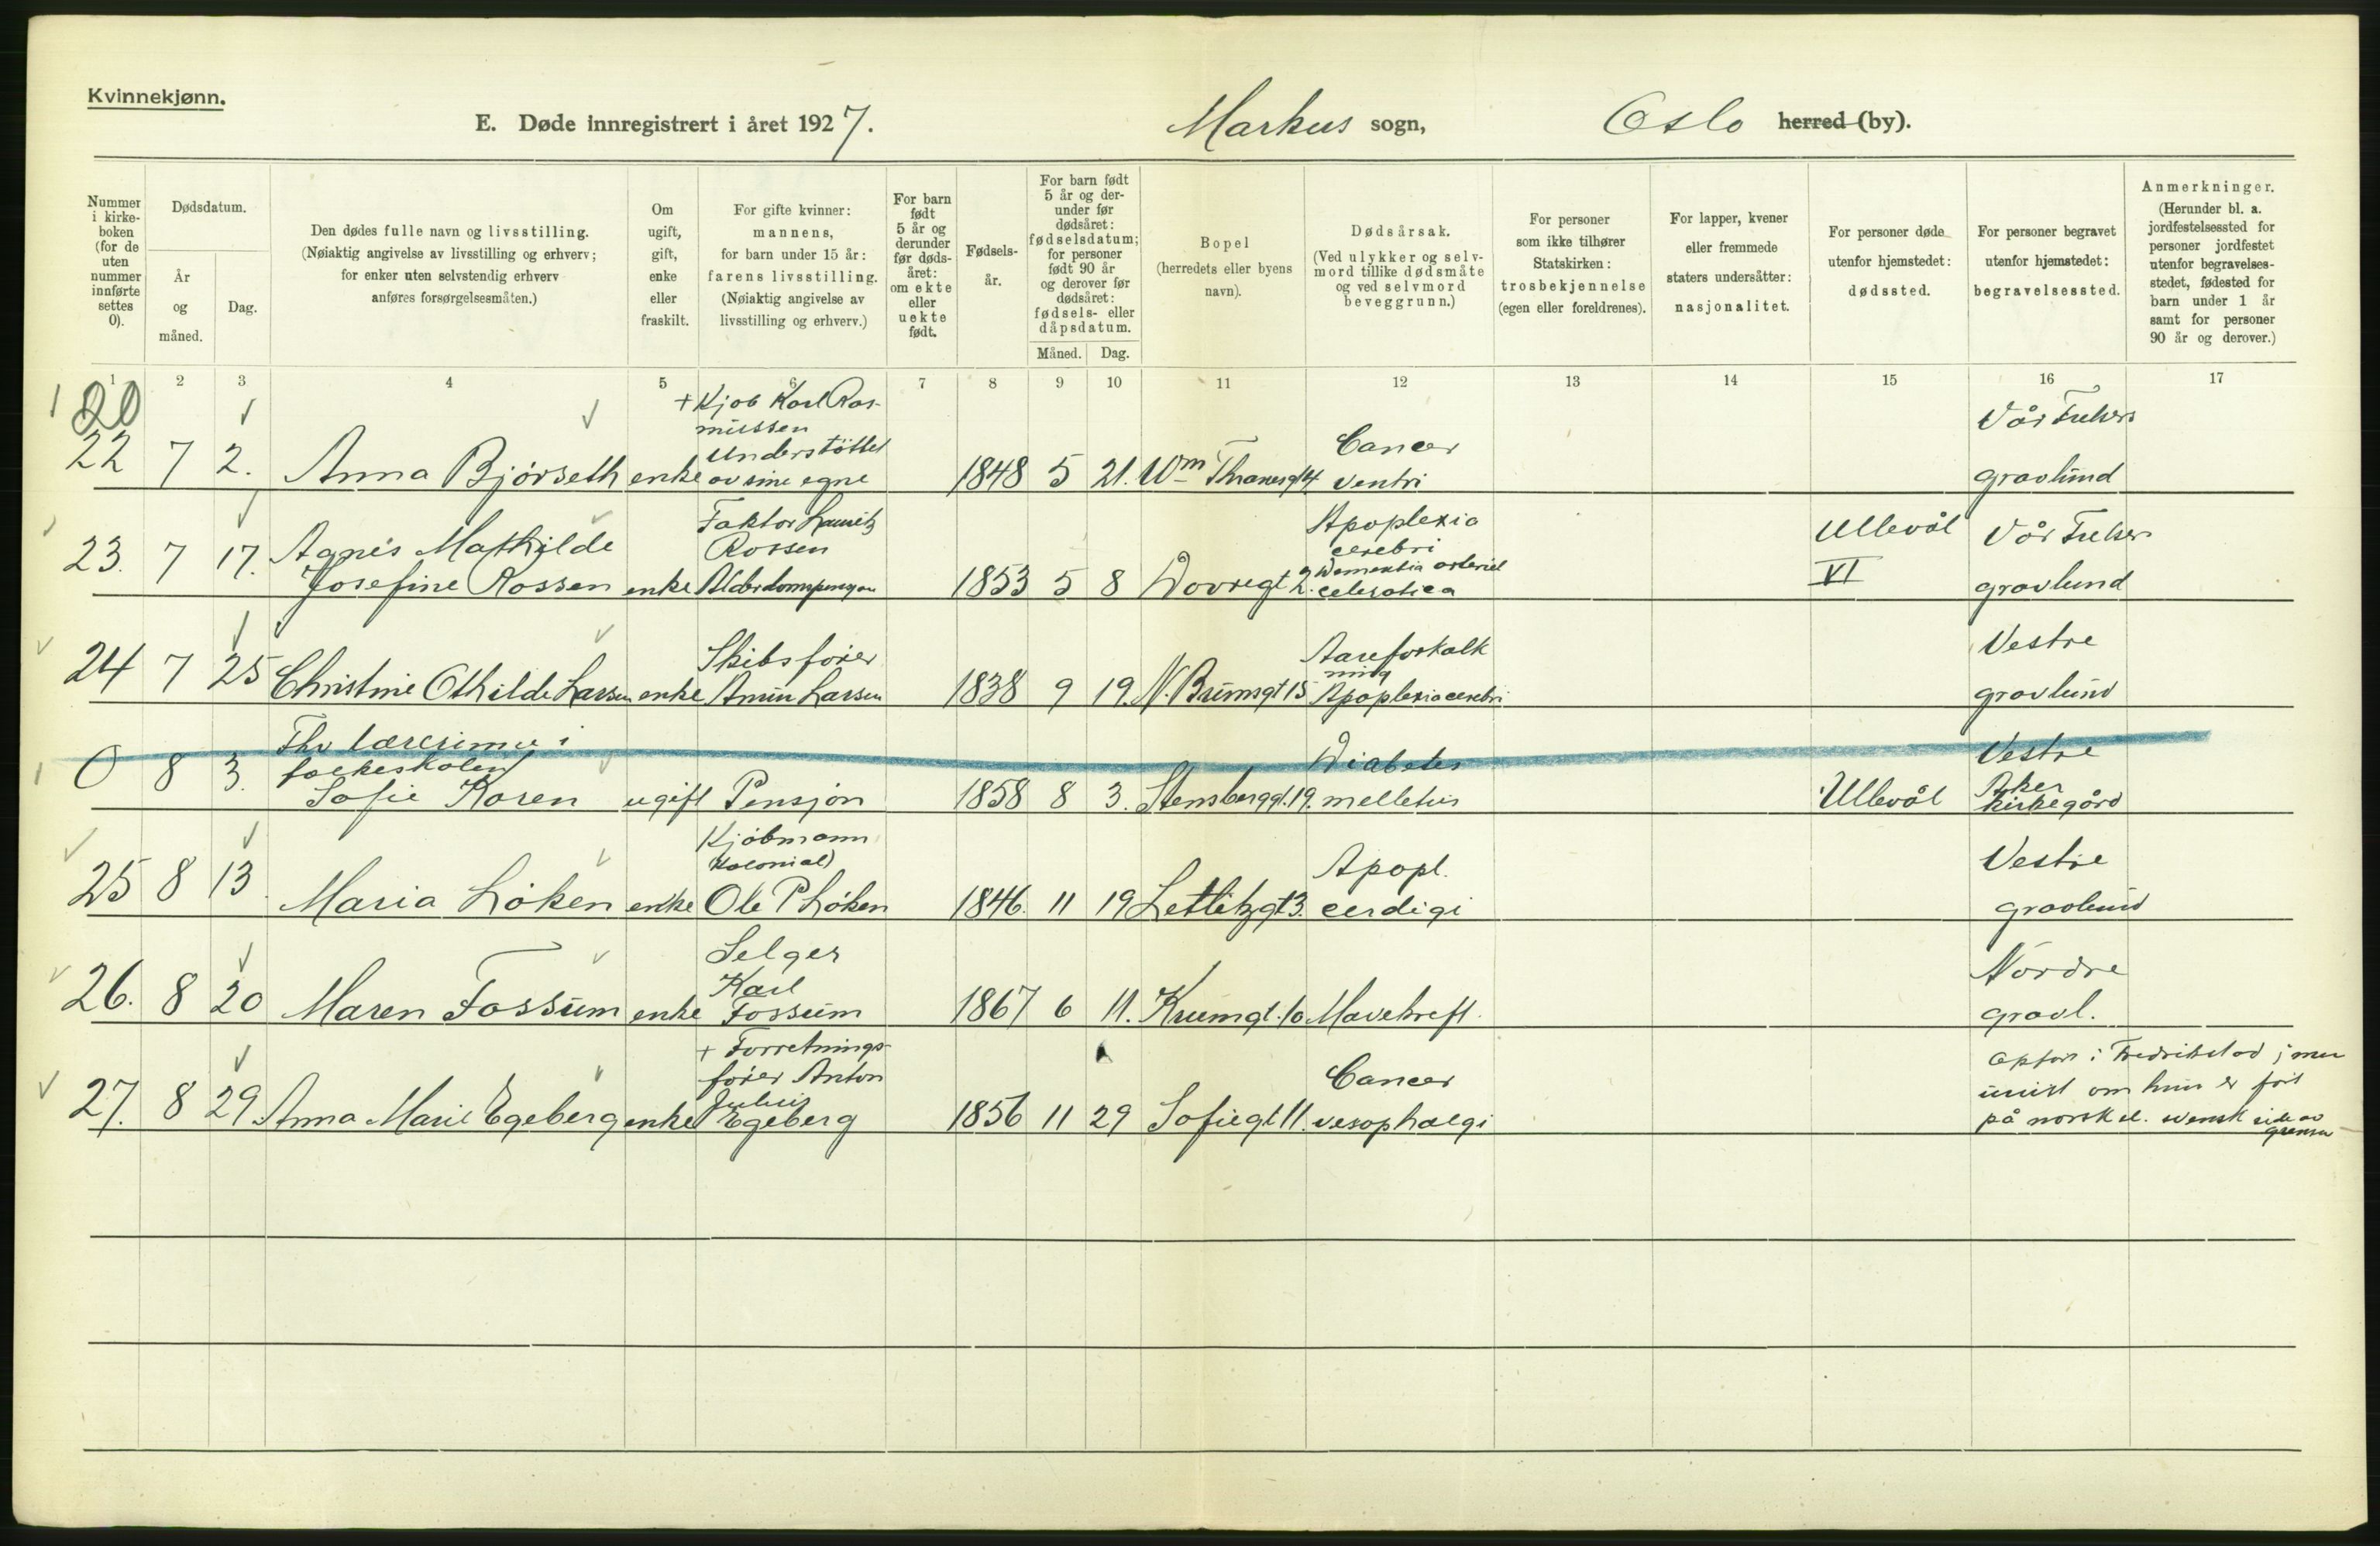 Kvinnekjønn.
E. Døde innregistrert i året 1927. Markus sogn, Oslo herred (by).
Nummer i kirkeboken (for de uten nummer innførte settes 0).
Dødsdatum.
År og måned.
Dag.
Den dødes fulle navn og livsstilling.
(Nøiaktig angivelse av livsstilling og erhverv;
for enker uten selvstendig erhverv
anføres forsørgelsesmåten.)
Om ugift, gift, enke eller fraskilt.
For gifte kvinner: mannens,
for barn under 15 år:
farens livsstilling.
(Nøiaktig angivelse av
livsstilling og erhverv.)
For barn født 5 år og derunder før dødsåret: om ekte eller uekte født.
Fødselsår.
For barn født 5 år og derunder før dødsåret: fødselsdatum; for personer født 90 år og derover før dødsåret: fødsels- eller dåpsdatum.
Måned. Dag.
Bopel
(herredets eller byens
navn).
Dødsårsak.
(Ved ulykker og selvmord tillike dødsmåte og ved selvmord beveggrunn.)
For personer
som ikke tilhører
Statskirken:
trosbekjennelse
(egen eller foreldrenes).
For lapper, kvener
eller fremmede
staters undersåtter:
nasjonalitet.
For personer døde
utenfor hjemstedet:
dødssted.
For personer begravet
utenfor hjemstedet:
begravelsessted.
Anmerkninger.
(Herunder bl. a. jordfestelsessted for personer jordfestet utenfor begravelsesstedet, fødested for barn under 1 år samt for personer 90 år og derover.)
1 2 3 4 5 6 7 8 9 10 11 12 13 14 15 16 17
20
+ Kjøb Karl Rasmussen
Understøttet
22 7 2. Anna Bjørseth enke av sine egne 1848 5 21. Wm Thranesgt 4. Cancer ventri Vår Frelsers gravlund
Faktor Lauritz
Rossen
23. 7 17. Agnes Mathilde
Josefine Rossen enke Alderdomspensjon 1853 5 8 Dovregt 2. Apoplexia cerebri Dementia Ullevål VI Vår Frelsers gravlund
Skibsfører
24 7 25 Christine Othilde Larsen enke Larsen 1838 9 19. N. Brunsgt 15 Aareforkalkning Apoplexia cerebri Vestre gravlund
Fhv lærerinne i
folkeskolen
0 8 3. Sofie Koren ugift Pensjon 1858 8 3. Stensberggt. 19. Diabetes melletus Ullevål Vestre Aker kirkegård
Kjøbmann
(kolonial)
25 8 13. Maria Løken enke Ole P Løken 1846. 11 19 gt 3. Apopl. Vestre gravlund
Selger
Karl
26. 8 20 Maren Fossum enke Fossum 1867 6 11. Krumgt. 10 Mavekreft. Nordre gravl.
+ Forretnings-
fører Anton
Julius
27. 8 29 Anna Marie Egeberg enke Egeberg 1856 11 29 Sofiegt 11. Cancer i Fredrikstad; men
uvist om hun er
på norsk el. svensk side av
grensen